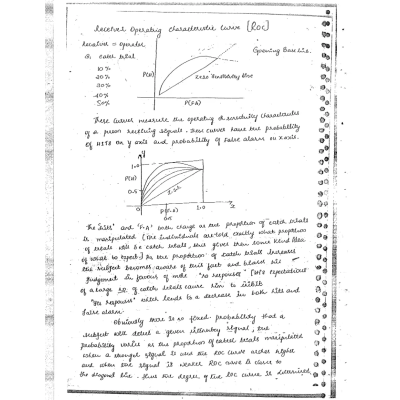 Receiver Operating Characteristic Curve [ROC]
Receiver = operator
% catch trial
Opening Bowl
10%
20%
30%
40%
50%
P(H)
zero sensitivity line
P(FA)
These curves measure the operating & sensitivity characteristics
of a person receiving signals. These curves have the probability
of HITS on y axis and probability of false alarm on x axis.
y
1.0
P(H)
0.5
0
P(F.A)
0.5
1.0
x
The 'hits' and 'F.A' both change as the proportion of catch trials
is manipulated (the individuals are told exactly what proportion
of trials will be catch trials, this gives them some kind idea
of what to expect). As the proportion of catch trials increases
the subject becomes aware of this fact and biases his
Judgement in favour of more "no responses" [His expectations
of a large no. of catch trials cause him to inhibit
"Yes responses" which leads to a decrease in both hits and
false alarm.
Obviously there is no fixed probability that a
subject will detect a given intensity signal, the
probability varies as the proportion of catch trials manipulated
when a stronger signal is used the ROC curve arches higher
and when the signal is weaker ROC curve is close to
the diagonal line. Thus the degree of the ROC curve is determined